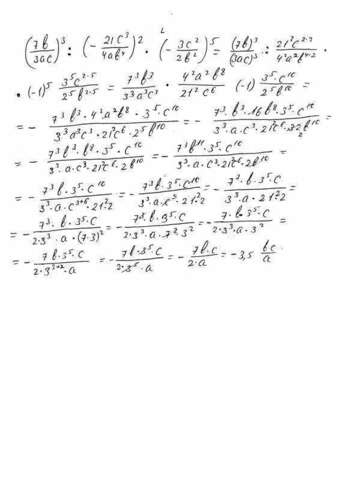 (7b/3ac)³ : (-21c³/4ab⁴)² · (-3c²/2b²)⁵ = (7b)³/(3ac)³ : 21²c²·³/4²a²b⁴·² ·
· (-1)⁵ 3⁵c²·⁵/2⁵b²·⁵ = 7³b³/3³a³c³ · 4²a²b⁸/21²c⁶ · (-1) 3⁵·c¹⁰/2⁵b¹⁰ =
= - 7³b³·4²a²b⁸·3⁵·c¹⁰/3³a³c³·21²c⁶·2⁵b¹⁰ = - 7³·b³·16b⁸·3⁵·c¹⁰/3³·a·c³·21²c⁶·32b¹⁰ =
= - 7³b³·b⁸·3⁵·c¹⁰/3³·a·c³·21²c⁶·2b¹⁰ = - 7³b¹¹·3⁵·c¹⁰/3³·a·c³·21²c⁶·2b¹⁰ =
= - 7³b·3⁵·c¹⁰/3³·a·c³⁺⁶·21²·2 = - 7³b·3⁵·c¹⁰/3³·a·c⁹·21²·2 = - 7³·b·3⁵·c/3³·a·21²·2 =
= - 7³·b·3⁵·c/2·3³·a·(7·3)² = - 7³·b·3⁵·c/2·3³·a·7²·3² = - 7·b·3⁵·c/2·3³·a·3² =
= - 7b·3⁵·c/2·3³⁺²·a = - 7b·3⁵·c/2·3⁵·a = - 7b·c/2·a = -3,5 bc/a